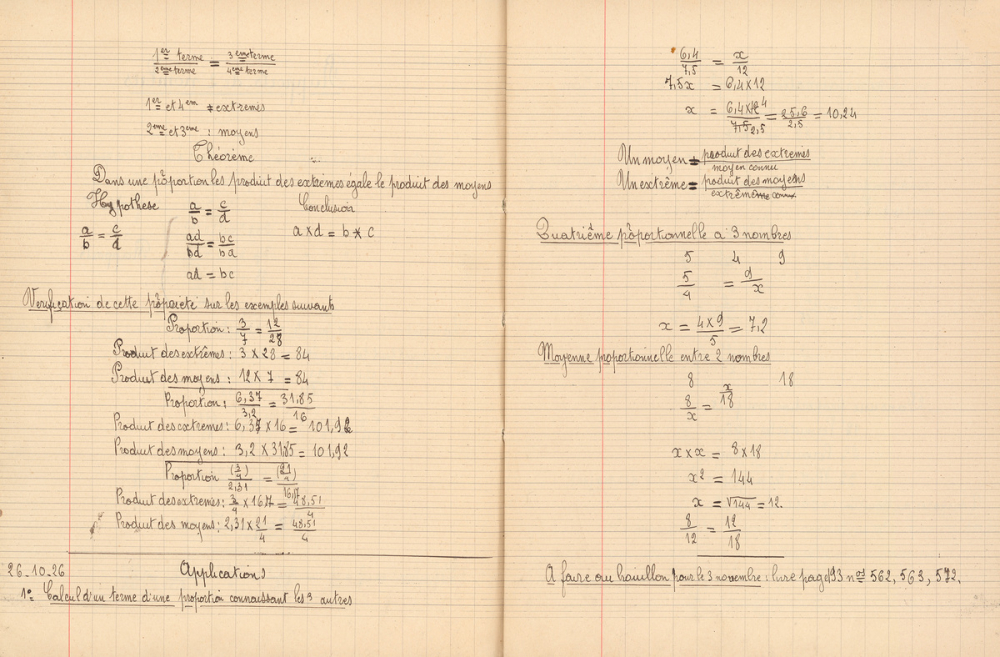 1er terme / 2eme terme = 3eme terme / 4eme terme
1er et 4em : extrêmes
2eme et 3eme : moyens
Théorème
Dans une proportion les produit des extrêmes égale le produit des moyens
Hypothese a/b = c/d Conclusion
a/b = c/d ad/bd = bc/bd a x d = b x c
ad = bc
Verification de cette propriété sur les exemples suivants
Proportion : 3/7 = 12/28
Produit des extrêmes : 3 x 28 = 84
Produit des moyens : 12 x 7 = 84
Proportion : 6,37/3,2 = 31,85/16
Produit des extremes : 6,37 x 16 = 101,92
Produit des moyens : 3,2 x 31,85 = 101,92
Proportion (3/4)/2,31 = (21/4)/16,17
Produit des extremes : 3/4 x 16,17 = 48,51/4
Produit des moyens : 2,31 x 21/4 = 48,51/4
26-10-26 Applications
1o Calcul d'un terme d'une proportion connaissant les 3 autres
6,4/7,5 = x/12
7,5x = 6,4 x 12
x = 6,4 x 12 4/7,5 2,5 = 25,6/2,5 = 10,24
Un moyen = produit des extremes / moyen connu
Un extrême = produit des moyens / extrême
Quatrième proportionnelle a 3 nombres
5 4 9
5/4 = 9/x
x = 4 x 9/5 = 7,2
Moyenne proportionnelle entre 2 nombres
8 x 18
8/x = x/18
x x x = 8 x 18
x² = 144
x = √144 = 12.
8/12 = 12/18
A faire au brouillon pour le 3 novembre : livre page 193 nos 562, 563, 572.